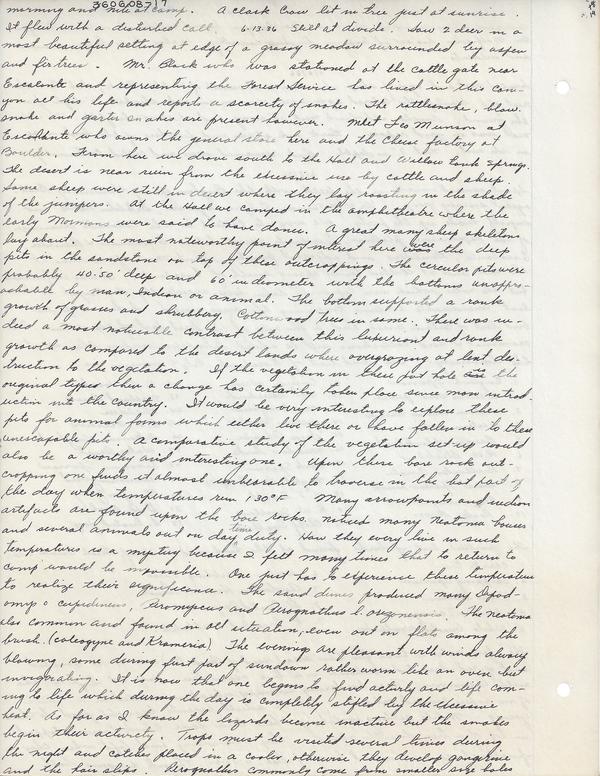 36060871 7
morning and nite at camp. A clark Crow lit in tree just at sunrise.
It flew with a disturbed call. 6-13-36 Still at divide. Saw 2 deer in a
most beautiful setting at edge of a grassy meadow surrounded by aspen
and fir trees. Mr. Black who was stationed at the cattle gate near
Escalante and representing the Forest Service has lived in this can-
yon all his life and reports a scarcity of snakes. The rattlesnake, blow
snake and garter snakes are present however. Meet Leo Munson at
Escalante who owns the general store here and the cheese factory at
Boulder. From here we drove south to the Hall and Willow tank springs.
The desert is near ruin from the excessive use by cattle and sheep.
Some sheep were still in desert where they lay roasting in the shade
of the junipers. At the Hall we camped in the amphitheatre where the
early Mormons were said to have dance. A great many sheep skeletons
lay about. The most noteworthy point of interest here were the deep
pits in the sandstone on top of these outcroppings. The circular pits were
probably 40-50' deep and 60' in diameter with the bottoms unappro-
achable by man, Indian or animal. The bottom supported a rank
growth of grasses and shrubbery, Cottonwood trees in some. There was in-
deed a most noticeable contrast between this luxuriant and rank
growth as compared to the desert lands where overgrazing at lent des-
truction to the vegetation. If the vegetation in these pot hole is the
original types then a change has certainly taken place since man introd-
uction into the country. It would be very interesting to explore these
pits for animal forms which either live there or have fallen in to these
unescapable pits. A comparative study of the vegetation set-up would
also be a worthy and interesting one. Upon these bare rock out-
cropping one finds it almost unbearable to traverse in the hot part of
the day when temperatures run 130°F Many arrowpoints and indian
artifacts are found upon the bare rocks. noticed many Neotoma houses
and several animals out on day time duty. How they every live in such
temperatures is a mystery because I felt many times that to return to
camp would be impossible. One just has to experience these temperatures
to realize their significance. The sand dunes produced many Dipod-
omys o cupidineus, Peromyscus and Perognathus l. arizonensis. The neotoma
also common and found in all situation, even out on flats among the
brush. (coleogyne and Krameria) The evenings are pleasant with winds always
blowing, some during first part of sundown rather warm like an oven but
invigorating. It is now that one begins to find activity and life com-
ing to life which during the day is completely stifled by the excessive
heat. As far as I know the lizards become inactive but the snakes
begin their activity. Traps must be visited several times during
the night and catches placed in a cooler, otherwise they develop gangerine
and the hair slips. Perognathus commonly come from smaller size holes